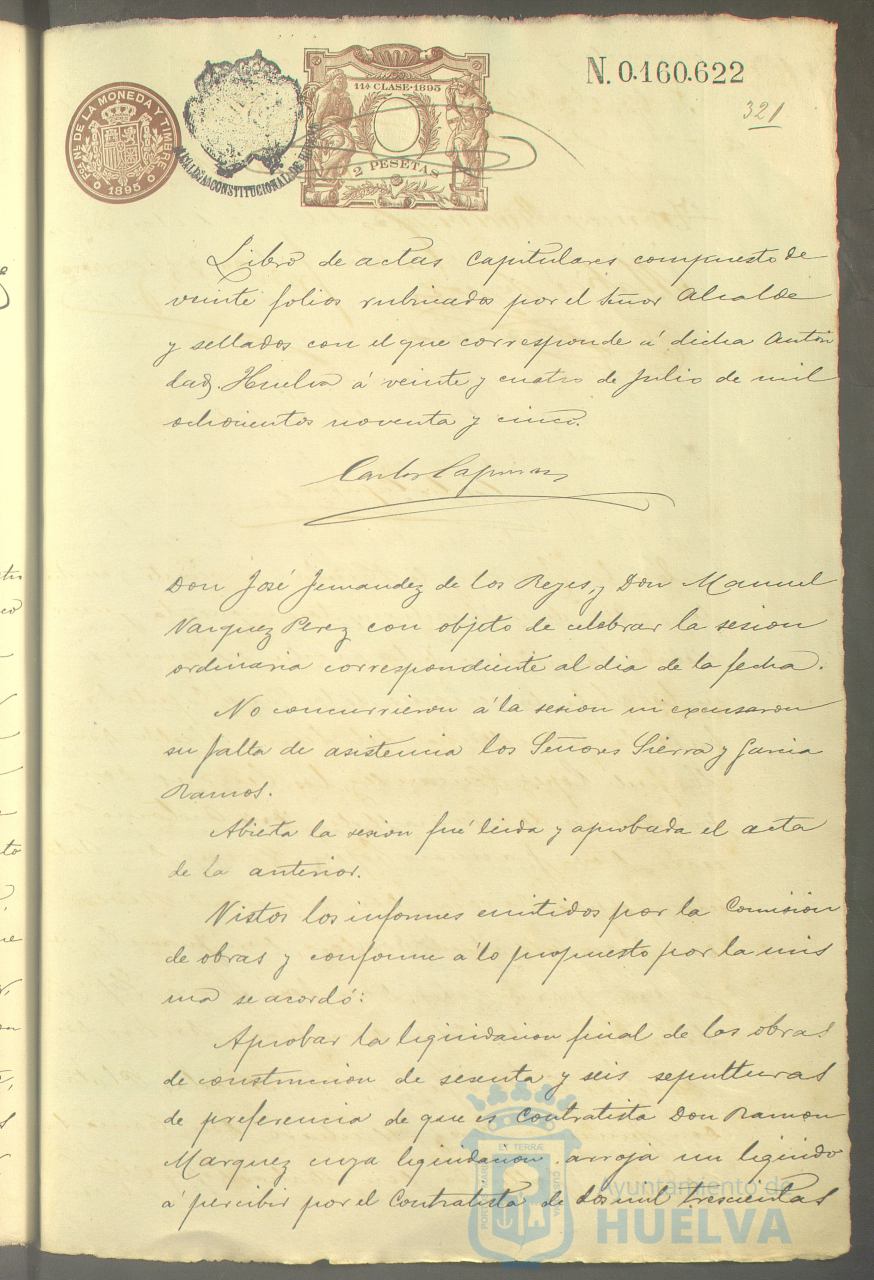 N. 0.160.622
321
FCA. NL. DE LA MONEDA Y TIMBRE
1895
CONSTITUCIONAL DE
11ª CLASE · 1895
2 PESETAS
Libro de actas Capitulares compuesto de
veinte folios rubricados por el Señor Alcalde
y sellados con el que corresponde á dicha Autori
dad. Huelva á veinte y cuatro de Julio de mil
ochocientos noventa y cinco.
Carlos
Don José Fernandez de los Reyes, y Don Manuel
Vazquez Perez con objeto de celebrar la sesion
ordinaria correspondiente al dia de la fecha.
No concurrieron á la sesion ni excusaron
su falta de asistencia los Señores Sierra y Garcia
Ramos.
Abierta la sesion fué leida y aprobada el acta
de la anterior.
Vistos los informes emitidos por la Comision
de obras y conforme á lo propuesto por la mis
ma se acordó:
Aprobar la liquidacion final de las obras
de construccion de sesenta y seis sepulturas
de preferencia de que es Contratista Don Ramon
Marquez cuya liquidacion arroja un liquido
á percibir por el Contratista de dos mil trescientas
Ayuntamiento de
HUELVA